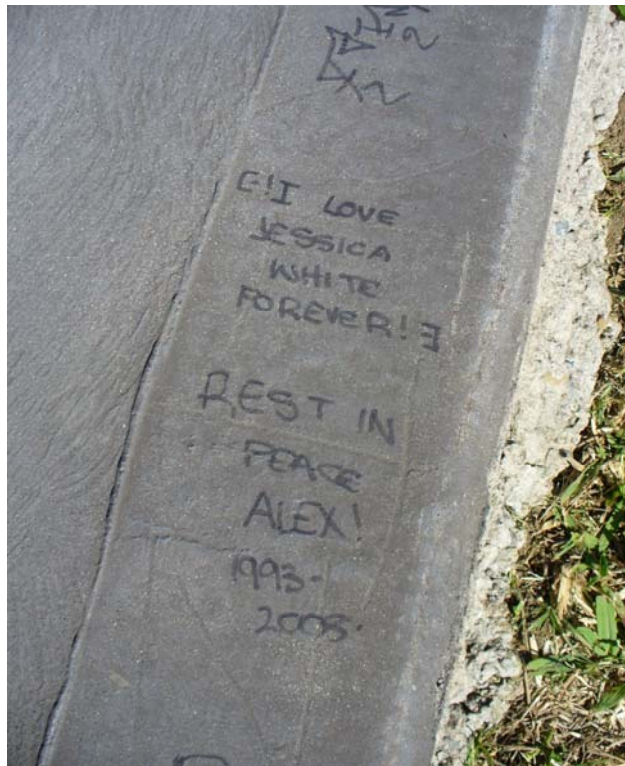 [!I LOVE
JESSICA
WHITE
FOREVER!]
REST IN
PEACE
ALEX!
1993-
2008.